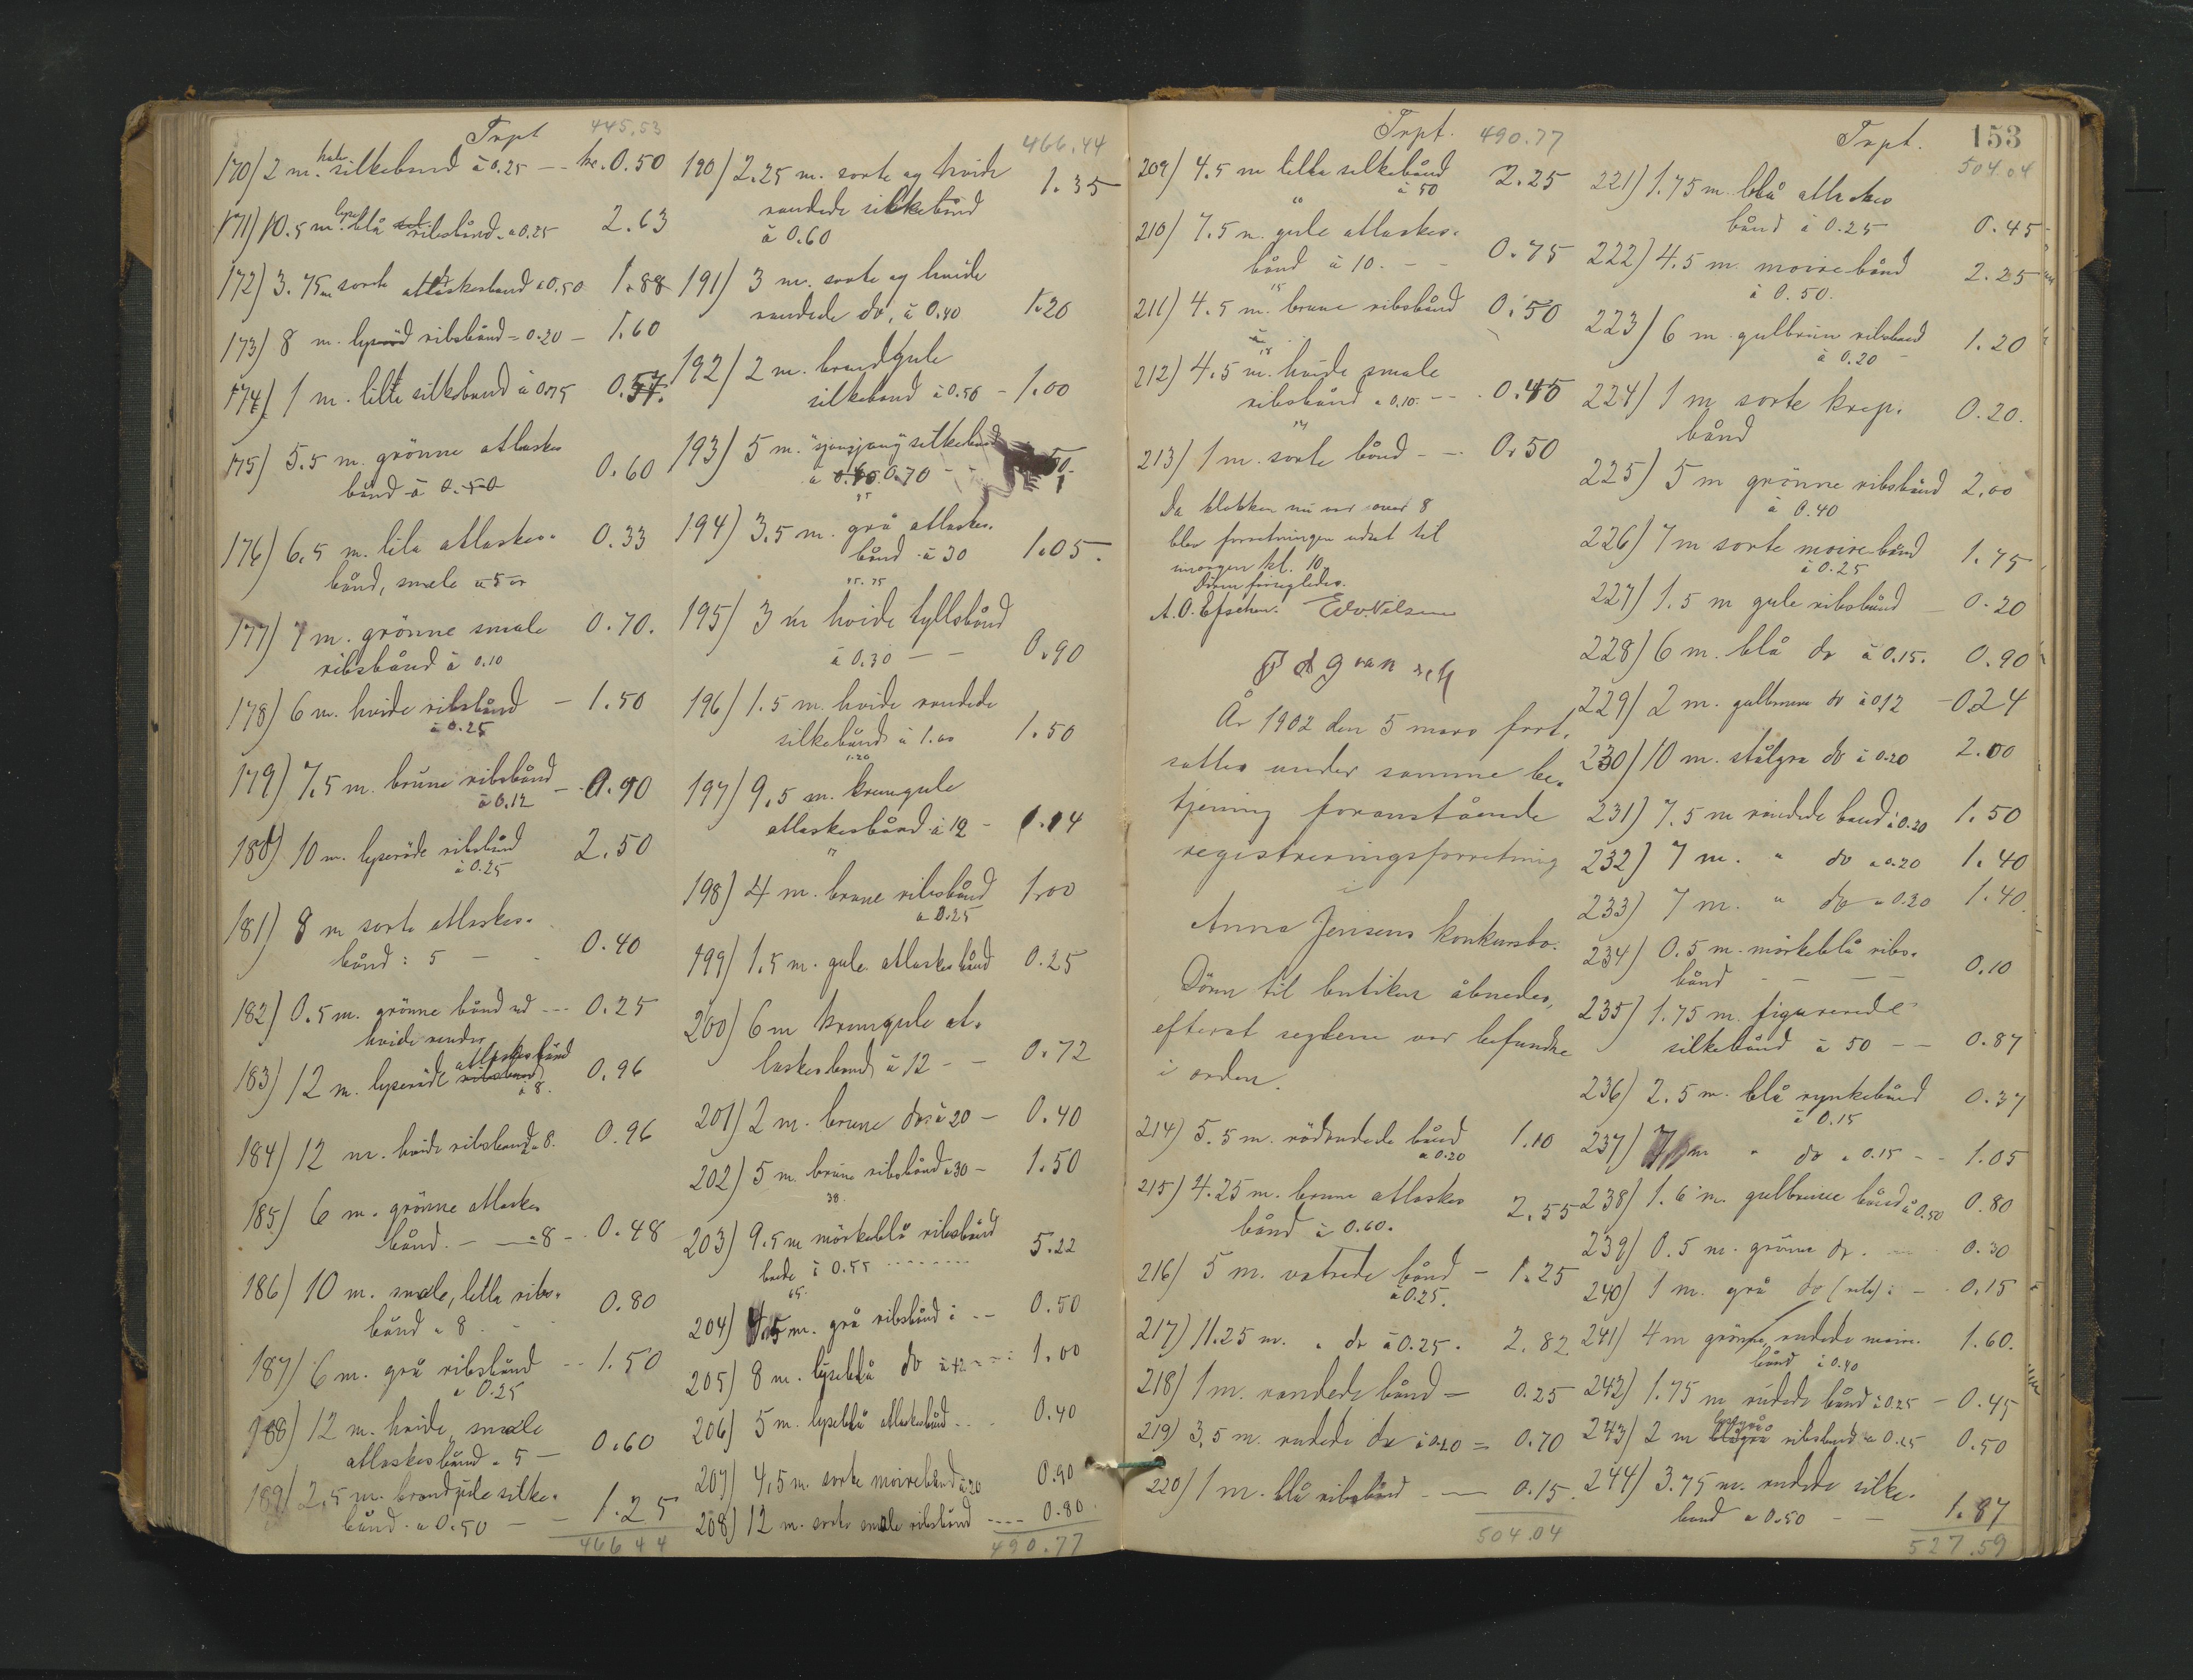 Trpt 445,53
170) 2 m. silkebånd à 0.25 -- kr. 0.50
171) 10.5 m. lyse blå ribsbånd à 0.25 2.63
172) 3.75 m sorte atlaskesbånd à 0.50 1.88
173) 8 m. lyserød ribsbånd = 0.20 - 1.60
174) 1 m. lilla silkebånd à 0.75
175) 5.5 m. grönne atlaskes 0.60
bånd à 0.50
176) 6.5 m. lila atlaskes- 0.33
bånd, smale à 5 ør
177) 7 m. grönne smale 0.70.
ribsbånd à 0.10
178) 6 m. hvide ribsbånd - 1.50
à 0.25
179) 7.5 m. brune ribsbånd - 0.90
à 0.12
180) 10 m. lyseröde ribsbånd 2.50
à 0.25
181) 8 m sorte atlaskes-
bånd : 5 - 0.40
182) 0.5 m. grönne bånd md --- 0.25
hvide render
183) 12 m. lyseröde atlaskesbånd 0.96
à 8.
184) 12 m. hvide ribsbånd à 8. 0.96
185) 6 m. grönne atlaskes
bånd. - à 8 - 0.48
186) 10 m. smale, lilla ribs- 0.80
bånd à 8
187) 6 m. grå ribsbånd -- 1.50
à 0.25
188) 12 m. hvide, smale
atlaskesbånd à 5 - 0.60
189) 2.5 m. brandgule silke-
bånd à 0.50 - - 1.25
466.44
466,44
190) 2.25 m. sorte og hvide 1.35
randede silkebånd
à 0.60
191) 3 m. sorte og hvide
randede do, à 0.40 1.20
192) 2 m. brandgule
silkebånd à 0.50 - 1.00
193) 5 m. sjangjang silkebånd
à 0.70
194) 3.5 m. grå atlaskes-
bånd à 30 1.05.
195) 3 m hvide tyllsbånd
à 0.30 - - 0.90
196) 1.5 m. hvide randede
silkebånd à 1.00 1.50
1.20
197) 9.5 m. kremgule
atlaskesbånd à 12 - 1.14
198) 4 m. brune ribsbånd 1.00
à 0.25
199) 1.5 m. gule atlaskesbånd 0.25
200) 6 m kremgule at-
laskesbånd à 12 - - 0.72
201) 2 m. brune do à 20 - 0.40
202) 5 m. brune ribsbånd à 30 - 1.50
203) 9.5 m mörkeblå ribsbånd 5.22
brede à 0.55
204) m. grå ribsbånd à -- 0.50
205) 8 m. lyseblå do à 12 1.00
206) 5 m. lyseblå atlaskesbånd 0.40
207) 4,5 m. sorte moirebånd à 20 0.90
208) 12 m. sorte smale ribsbånd ---- 0.80
490.77
Trpt. 490.77
209) 4.5 m lilla silkebånd 2.25
à 50
210) 7.5 m. gule atlaskes-
bånd à 10. - - 0.75
211) 4.5 m. brune ribsbånd 0.50
212) 4.5 m. hvide smale
ribsbånd à 0.10. -- 0.45
213) 1 m. sorte bånd - - 0.50
Da klokken nu var over 8
blev forretningen udsat til
imorgen kl. 10.
Dören forsegledes.
Edv. Nilsen
År 1902 den 5 mars fort-
sattes under samme be-
tjening foranstående
registreringsforretning
i
Anna Jensens konkursbo.
Dören til butiken åbnedes,
efterat seglene var befundne
i orden.
214) 5.5 m. rödrudede bånd 1.10
à 0.20
215) 4.25 m. brune atlaskes
bånd à 0.60. 2.55
216) 5 m. vatrede bånd - 1.25
à 0.25.
217) 11.25 m. " do à 0.25. 2.82
218) 1 m. randede bånd - 0.25
219) 3,5 m. rudede do à 0.20 = 0.70
220) 1 m. blå ribsbånd - 0.15.
504.04
Trpt. 153
504.04
221) 1.75 m. blå atlaskes
bånd à 0.25 0.45
222) 4.5 m. moirebånd 2.25
à 0.50.
223) 6 m. gulbrun ribsbånd 1.20
à 0.20
224) 1 m sorte krep- 0.20.
bånd
225) 5 m grönne ribsbånd 2,00
à 0.40
226) 7 m sorte moirebånd 1.75
à 0.25
227) 1.5 m gule ribsbånd - 0.20
228) 6 m. blå do à 0.15. 0.90
229) 2 m. gulbrune do à 0,12 - 0.24
230) 10 m. stålgrå do à 0.20 2.00
231) 7.5 m rudede bånd à 0.20 1.50
232) 7 m. " do à 0.20 1.40
233) 7 m. " do à 0.20 1.40.
234) 0.5 m. mörkeblå ribs-
bånd - - - 0.10
235) 1.75 m. figurerede
silkebånd à 50 -- 0.87
236) 2.5 m. blå rynkebånd 0.37
à 0.15
237) 7 m " do à 0.15 -- 1.05
238) 1.6 m. gulbrune bånd à 0.50 0.80
239) 0.5 m. grönne do. 0.30
240) 1 m. grå do (ribs) : - 0.15
241) 4 m grönne, rudede moire- 1.60.
bånd à 0.40
242) 1.75 m rudede bånd à 0.25 - 0.45
243) 2 m ribsbånd à 0.25 0.50
244) 3.75 m. rudede silke-
bånd à 0.50 - - 1.87
527.59